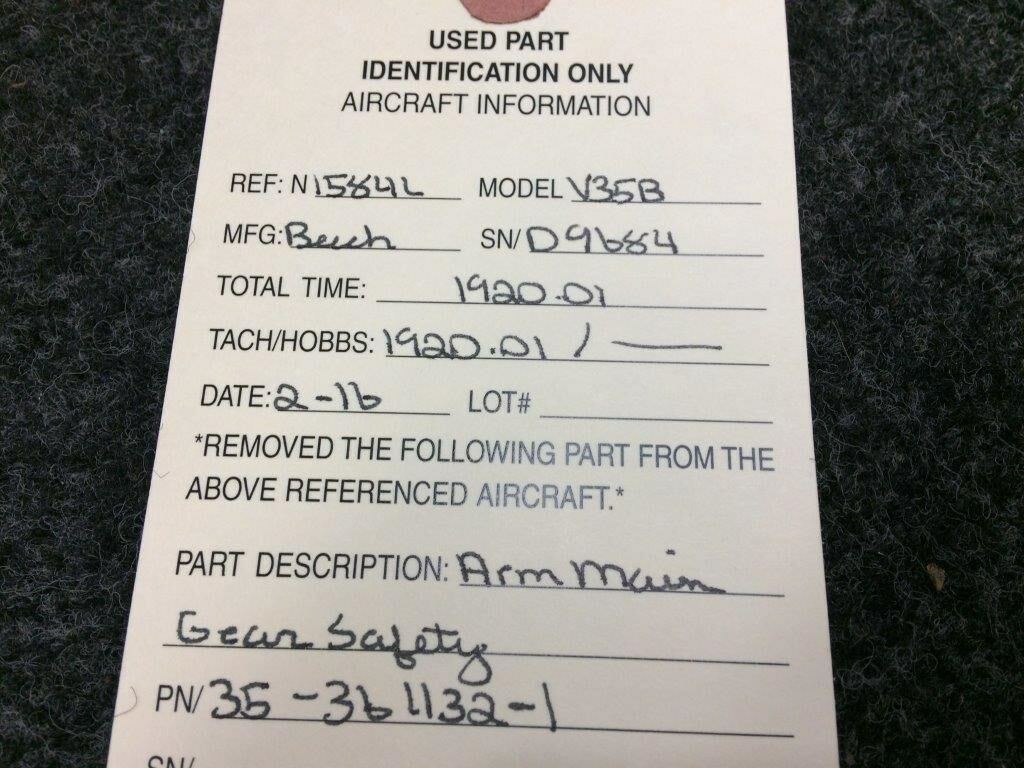 USED PART
IDENTIFICATION ONLY
AIRCRAFT INFORMATION
REF: N 1584L MODEL V35B
MFG: Beech SN/ D9684
TOTAL TIME: 1920.01
TACH/HOBBS: 1920.01 / —
DATE: 2-16 LOT#
*REMOVED THE FOLLOWING PART FROM THE
ABOVE REFERENCED AIRCRAFT.*
PART DESCRIPTION: Arm Main
Gear Safety
PN/ 35-361132-1
SN/